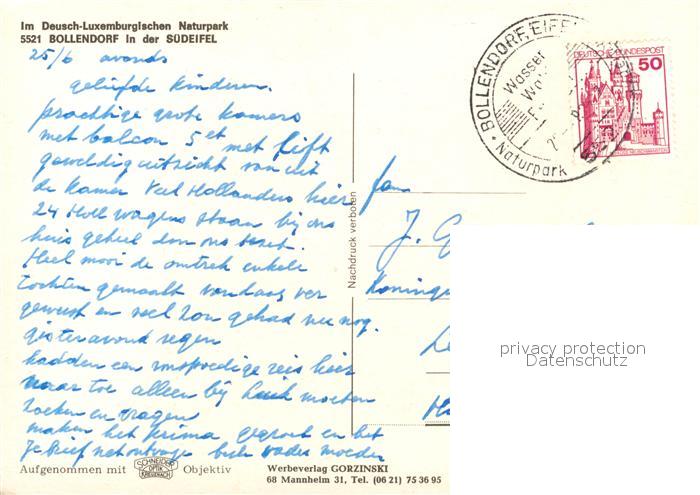 Im Deusch-Luxemburgischen Naturpark
5521 BOLLENDORF in der SÜDEIFEL
25/6 avonds
geliefde kinderen.
prachtige grote kamers
met balcon 5et met lift
geweldig uitzicht van uit
de kamer Veel Hollanders hier
24 Holl wagens staan bij ons
huis geheel door ons bezet.
Heel mooi de omtrek enkele
tochten gemaakt vandaag ver
geweest en veel zon gehad nu nog.
gisteravond regen
hadden een voorspoedige reis hier
naar toe alleen bij moeten
zoeken en vragen
maken het prima gegroet en het
je brief net ontvangen vader moeder
Aufgenommen mit
SCHNEIDER
OPTIK
KREUZNACH
Objektiv
Werbeverlag GORZINSKI
68 Mannheim 31, Tel. (06 21) 75 36 95
Nachdruck verboten
Fam
J.
Koningi
BOLLENDORF, EIFEL
Wasser
Naturpark
DEUTSCHE BUNDESPOST
50
privacy protection
Datenschutz